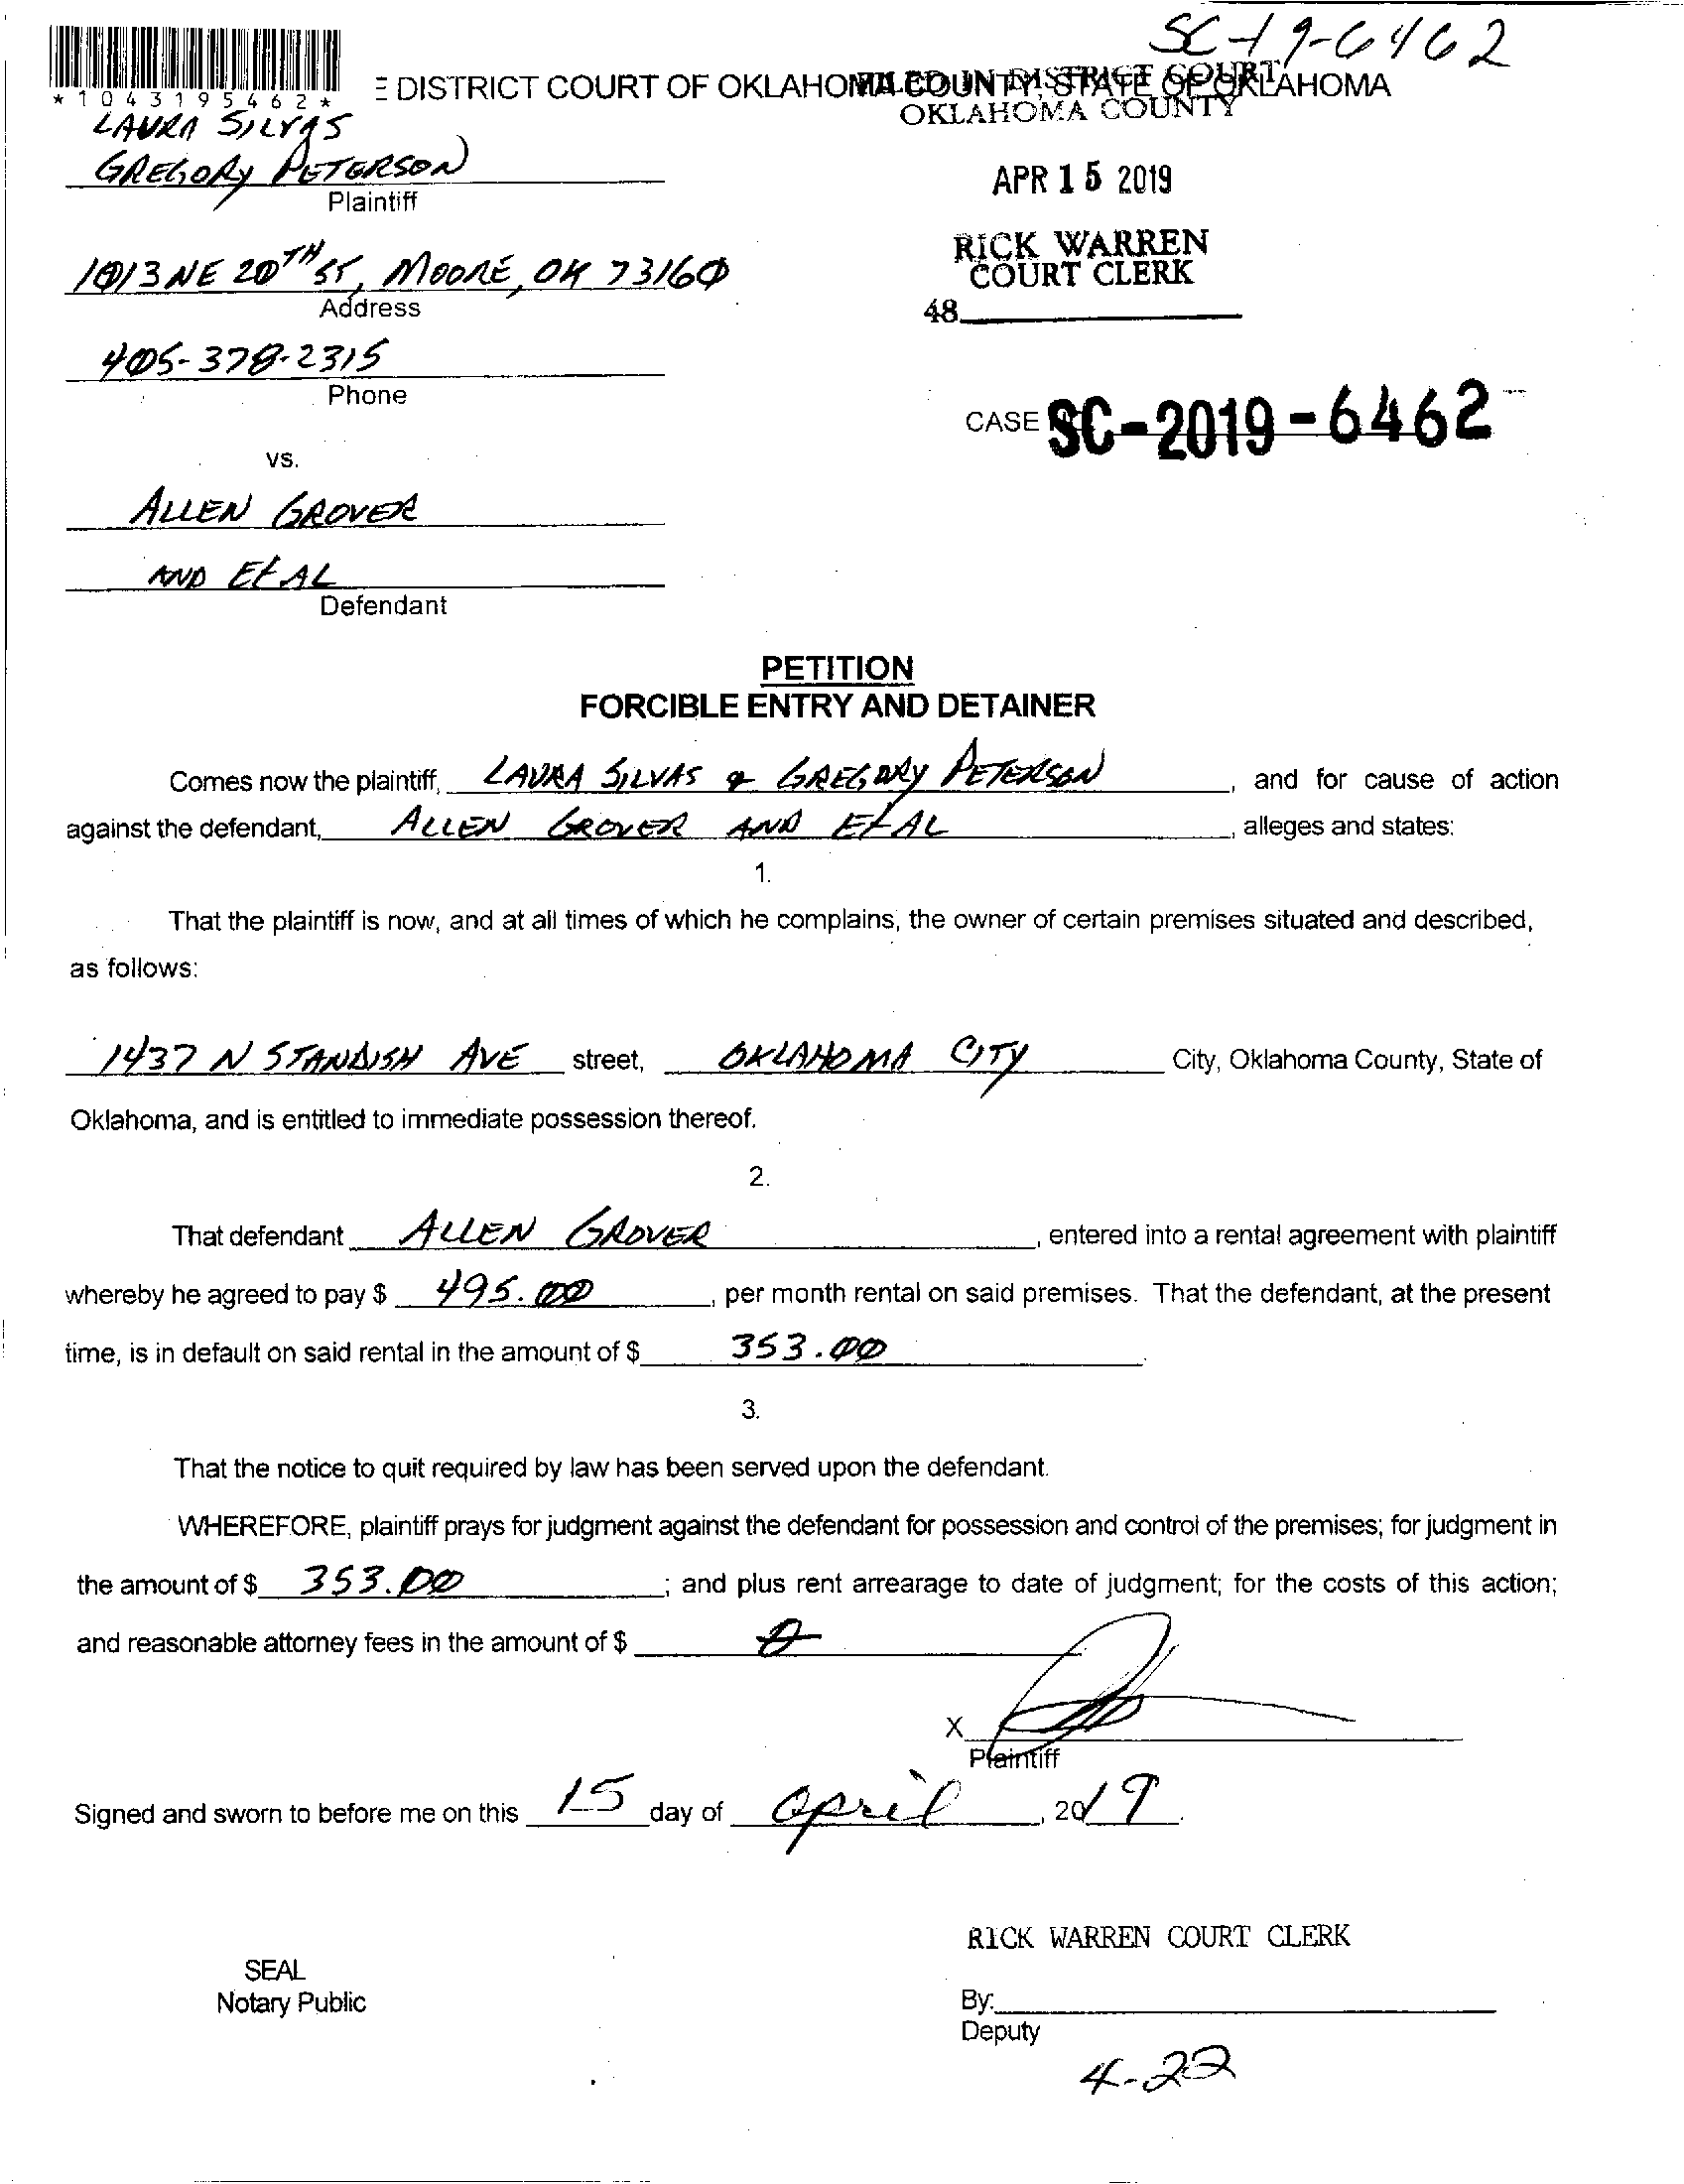 SC-19-6462
E DISTRICT COURT OF OKLAHOMA COUNTY, STATE OF OKLAHOMA
FILED IN DISTRICT COURT
OKLAHOMA COUNTY
*1043195462*
LAURA SILVAS
GREGORY PETERSON
Plaintiff
APR 15 2019
RICK WARREN
COURT CLERK
48
1013 NE 20TH ST, MOORE, OK 73160
Address
405-378-2315
Phone
CASE SC-2019-6462
vs.
ALLEN GROVER
AND Et AL
Defendant
PETITION
FORCIBLE ENTRY AND DETAINER
Comes now the plaintiff, LAURA SILVAS & GREGORY PETERSON, and for cause of action
against the defendant, ALLEN GROVER AND Et AL, alleges and states:
1.
That the plaintiff is now, and at all times of which he complains, the owner of certain premises situated and described,
as follows:
1437 N STANDISH AVE street, OKLAHOMA CITY City, Oklahoma County, State of
Oklahoma, and is entitled to immediate possession thereof.
2.
That defendant ALLEN GROVER, entered into a rental agreement with plaintiff
whereby he agreed to pay $ 495.00, per month rental on said premises. That the defendant, at the present
time, is in default on said rental in the amount of $ 353.00.
3.
That the notice to quit required by law has been served upon the defendant.
WHEREFORE, plaintiff prays for judgment against the defendant for possession and control of the premises; for judgment in
the amount of $ 353.00; and plus rent arrearage to date of judgment; for the costs of this action;
and reasonable attorney fees in the amount of $ 0
X
Plaintiff
Signed and sworn to before me on this 15 day of April, 2019.
RICK WARREN COURT CLERK
SEAL
Notary Public
By:
Deputy
4-22